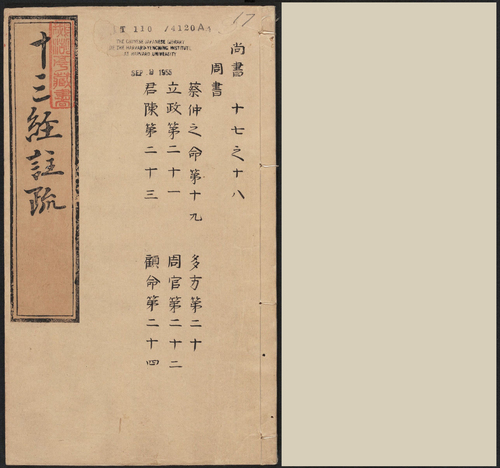 十三經註疏
T 110 / 4120A
17
THE CHINESE-JAPANESE LIBRARY
OF THE HARVARD-YENCHING INSTITUTE
AT HARVARD UNIVERSITY
SEP 9 1955
尚書 十七之十八
周書
蔡仲之命第十九 多方第二十
立政第二十一 周官第二十二
君陳第二十三 顧命第二十四